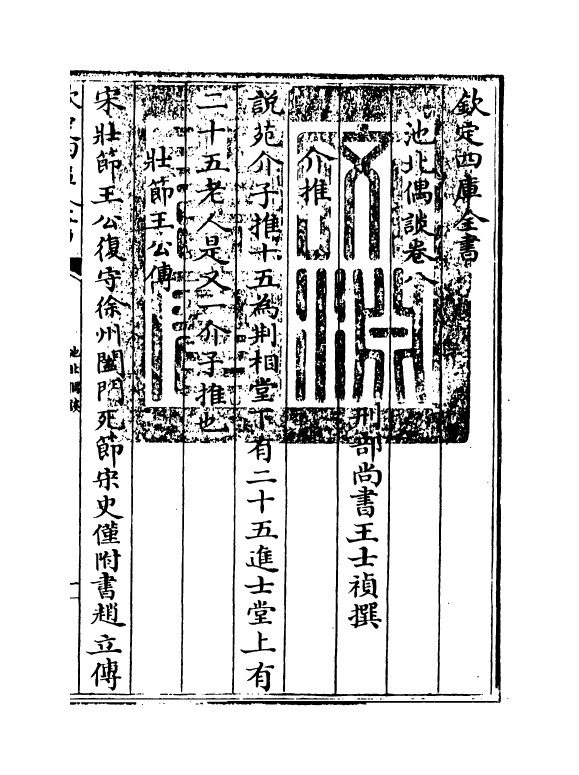 欽定四庫全書
池北偶談卷八
刑部尚書王士禎撰
介推
説苑介子推十五為荆相堂下有二十五進士堂上有
二十五老人是又一介子推也
壯節王公傳
宋壯節王公復守徐州闔門死節宋史僅附書趙立傳